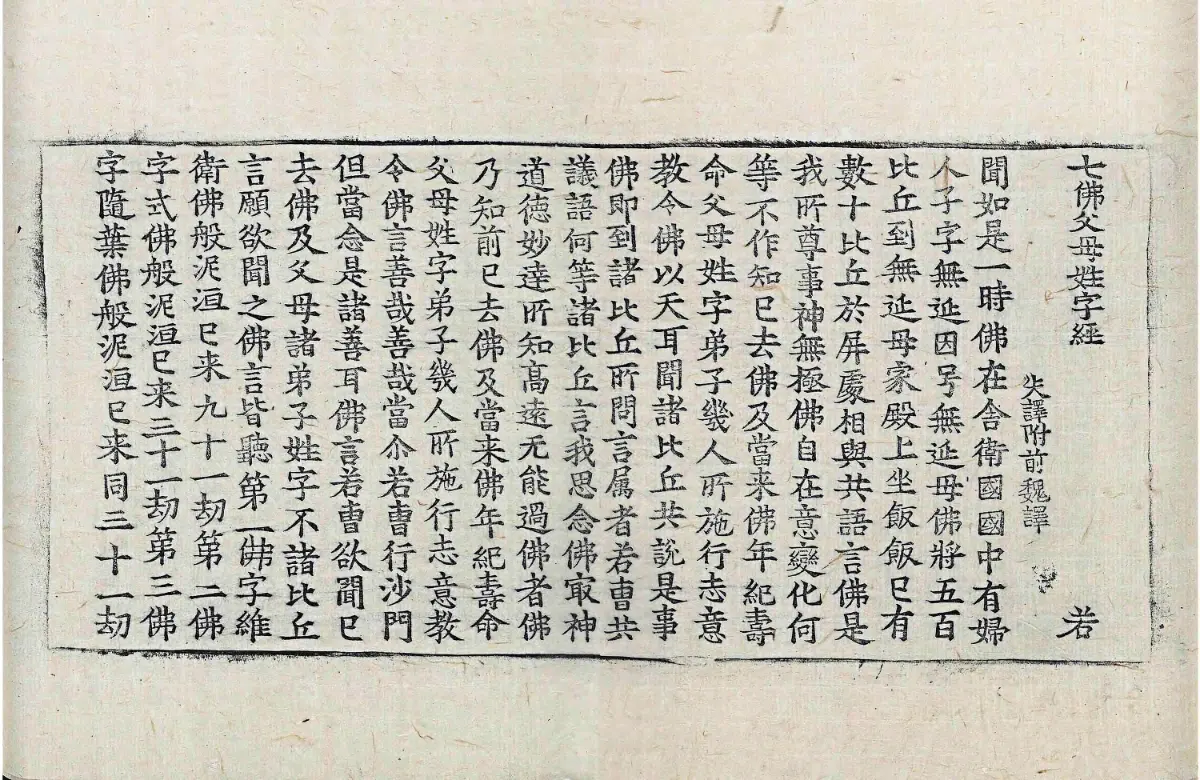 七佛父母姓字經 若
失譯附前魏譯
聞如是一時佛在舍衛國國中有婦
人子字無延因号無延母佛將五百
比丘到無延母家殿上坐飯飯已有
數十比丘於屏處相與共語言佛是
我所尊事神無極佛自在意變化何
等不作知已去佛及當来佛年紀壽
命父母姓字弟子幾人所施行志意
教令佛以天耳聞諸比丘共說是事
佛即到諸比丘所問言属者若曹共
議語何等諸比丘言我思念佛㝡神
道德妙達所知高遠无能過佛者佛
乃知前已去佛及當来佛年紀壽命
父母姓字弟子幾人所施行志意教
令佛言善哉善哉當尒若曹行沙門
但當念是諸善耳佛言若曹欲聞已
去佛及父母諸弟子姓字不諸比丘
言願欲聞之佛言皆聽第一佛字維
衛佛般泥洹已来九十一劫第二佛
字式佛般泥洹已来三十一劫第三佛
字隨葉佛般泥洹已来同三十一劫